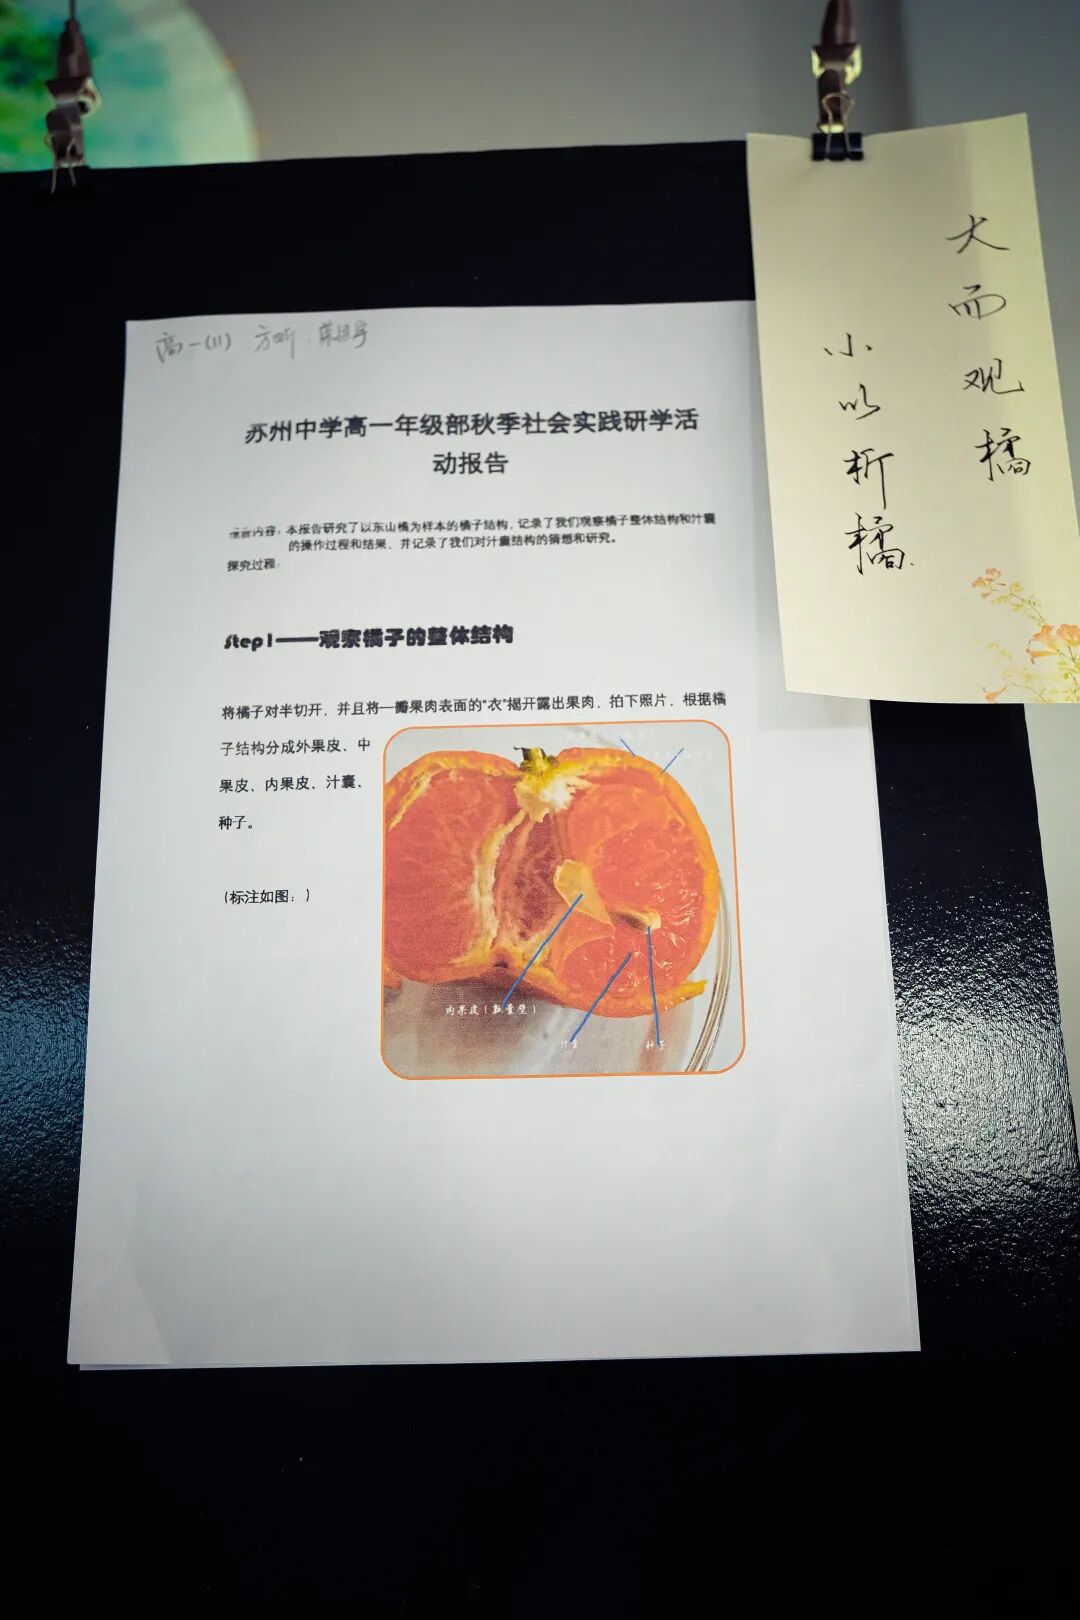 高一(11)
苏州中学高一年级部秋季社会实践研学活
动报告
内容：本报告研究了以东山橘为样本的橘子结构，记录了我们观察橘子整体结构和汁囊
的操作过程和结果，并记录了我们对汁囊结构的猜想和研究。
探究过程：
Step1——观察橘子的整体结构
将橘子对半切开，并且将一瓣果肉表面的“衣”揭开露出果肉，拍下照片，根据橘
子结构分成外果皮、中
果皮、内果皮、汁囊、
种子。
（标注如图：）
内果皮（瓤囊壁）
汁囊
种子
大而观橘
小以析橘.